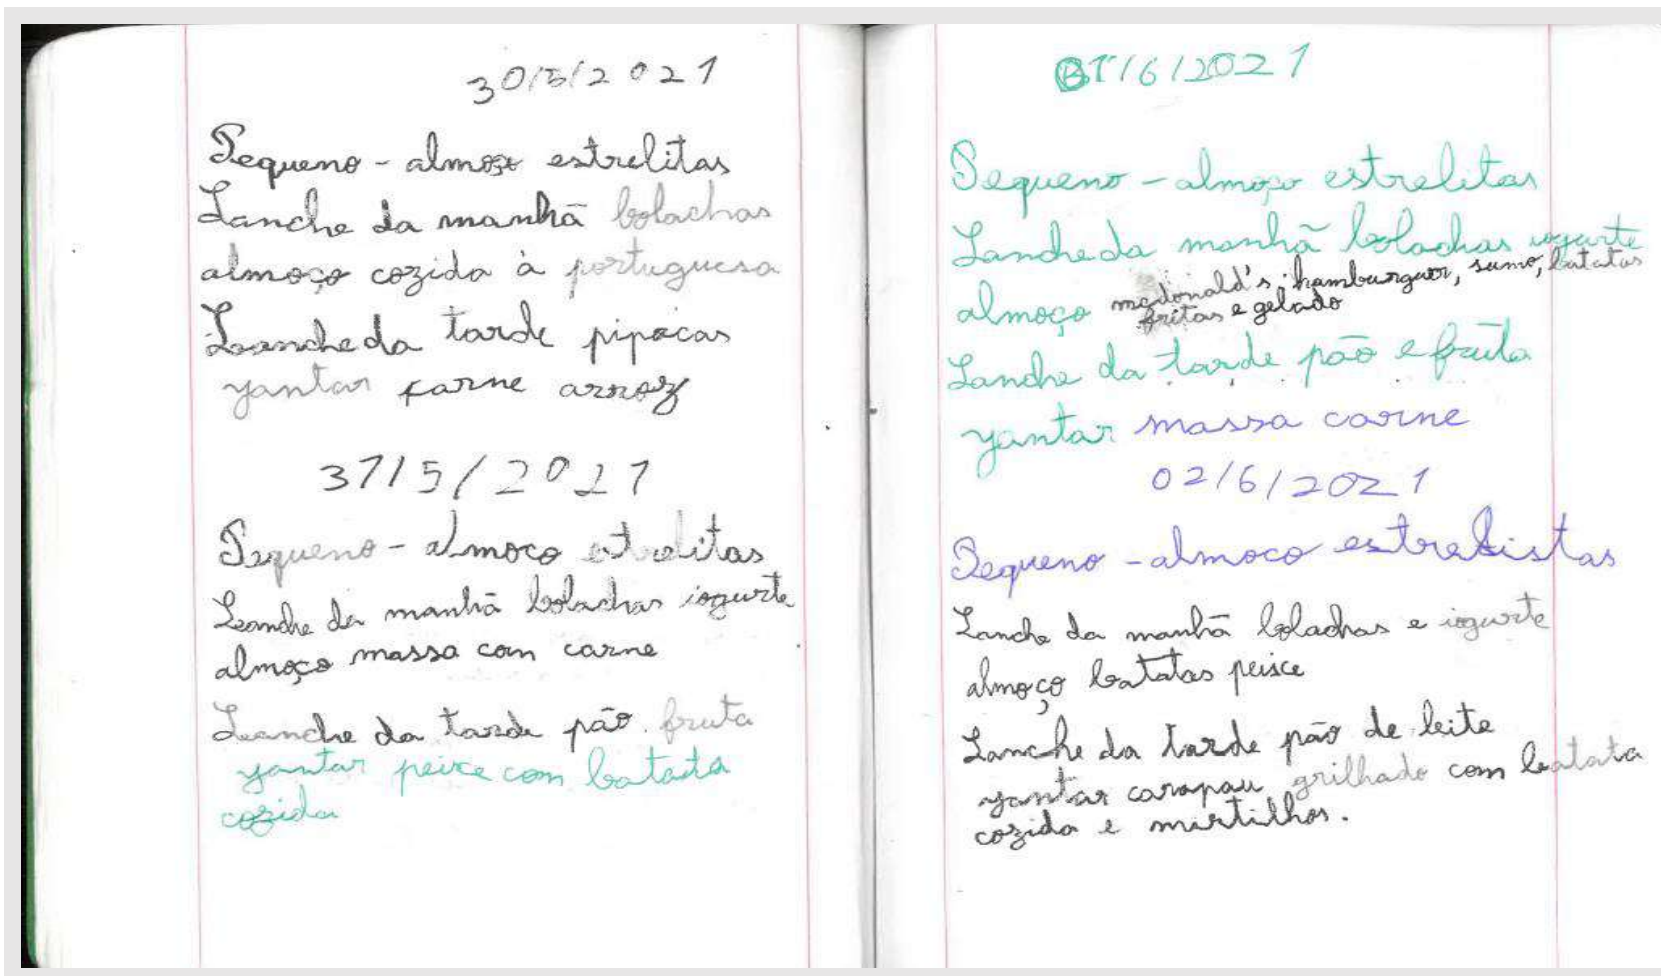 30/5/2021
Pequeno-almoço estrelitas
Lanche da manhã bolachas
almoço cozida à portuguesa
Lanche da tarde pipocas
yantar carne arroz
31/5/2021
Pequeno-almoco estrelitas
Lanche da manhã bolachas iogurte
almoço massa com carne
Lanche da tarde pão fruta
yantar peixe com batata
cozida
01/6/2021
Pequeno-almoço estrelitas
Lanche da manhã bolachas iogurte
almoço mcdonald's: hamburguer, sumo, batatas
fritas e gelado
Lanche da tarde pão e fruta
yantar massa carne
02/6/2021
Pequeno-almoco estrelistas
Lanche da manhã bolachas e iogurte
almoço batatas peixe
Lanche da tarde pão de leite
yantar carapau grilhado com batata
cozida e mirtilhos.